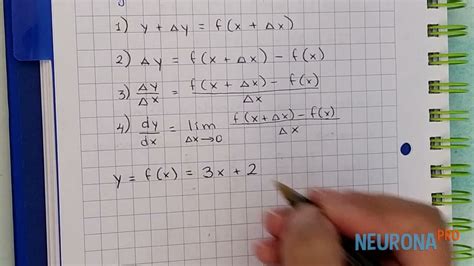 1) y + Δy = f(x + Δx)
2) Δy = f(x + Δx) - f(x)
3) Δy/Δx = f(x + Δx) - f(x)/Δx
4) dy/dx = lim Δx→0 f(x+Δx) - f(x)/Δx
y = f(x) = 3x + 2
NEURONA PRO